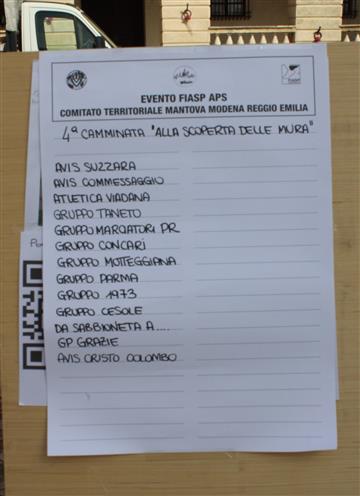 EVENTO FIASP APS
COMITATO TERRITORIALE MANTOVA MODENA REGGIO EMILIA
4ª CAMMINATA "ALLA SCOPERTA DELLE MURA"
AVIS SUZZARA
AVIS COMMESSAGGIO
ATLETICA VIADANA
GRUPPO TANETO
GRUPPO MARCIATORI PR
GRUPPO CONCARI
GRUPPO MOTTEGGIANA
GRUPPO PARMA
GRUPPO 1973
GRUPPO CESOLE
DA SABBIONETA A....
GP GRAZIE
AVIS CRISTO COLOMBO